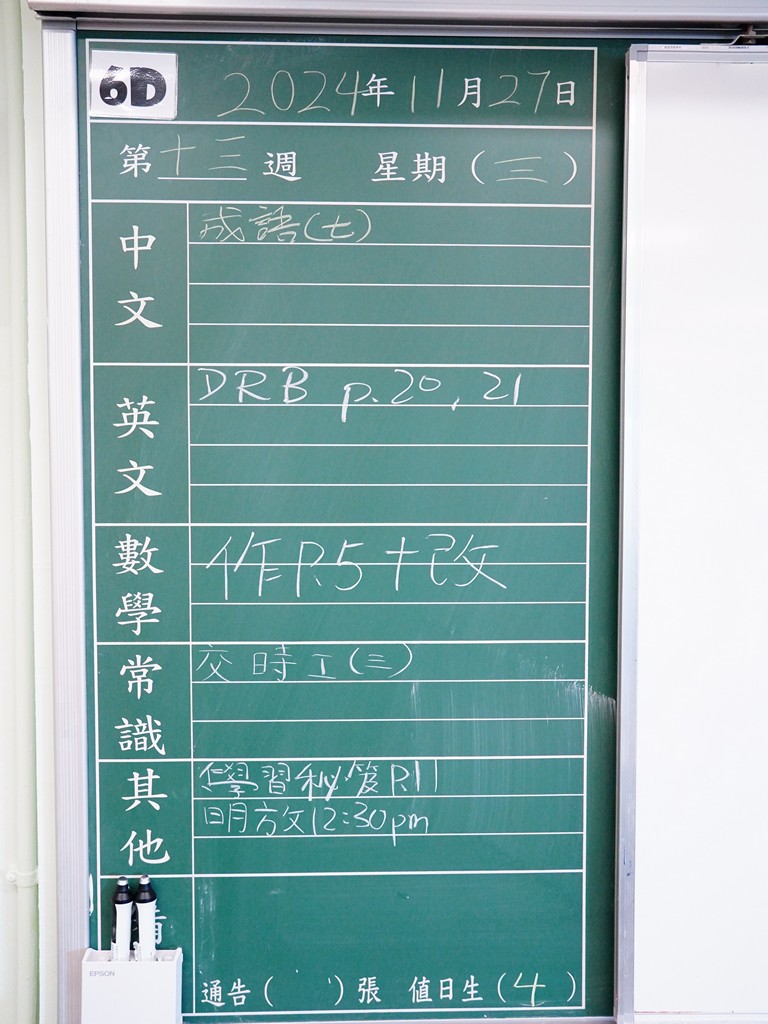 6D
2024年11月27日
第十三週 星期(三)
中文
成語(七)
英文
DRB p.20, 21
數學
作P.5+改
常識
交時工(三)
其他
學習秘笈P.11
明放 12:30pm
EPSON
通告( )張 值日生(4)